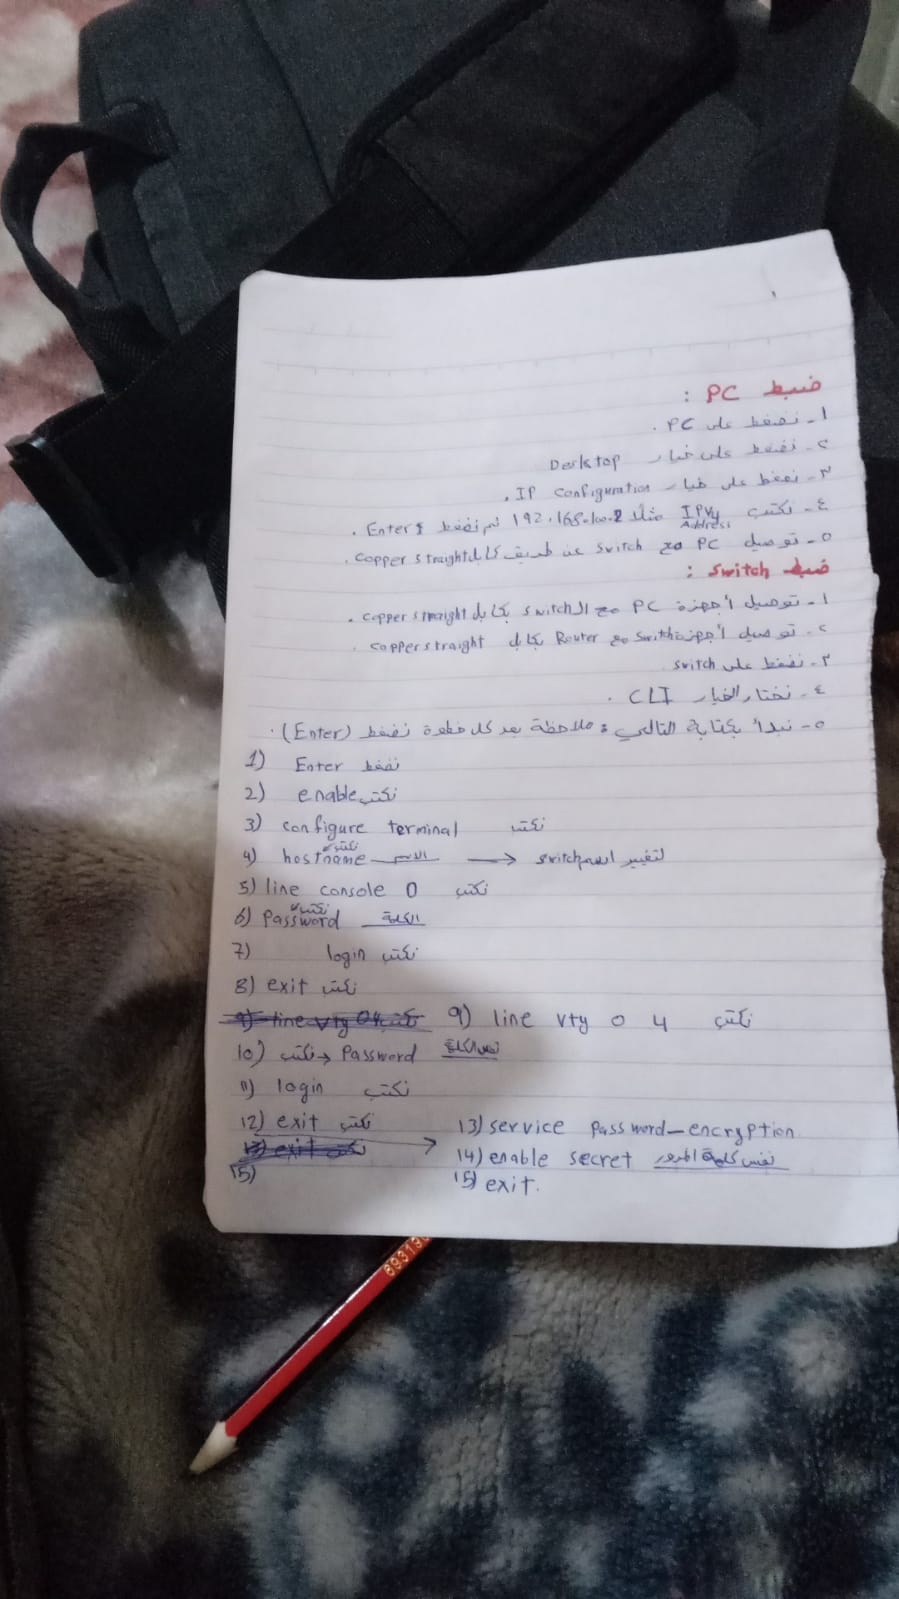 ضبط PC :
١- نضغط على PC .
٢- نضغط على خيار Desktop
٣- نضغط على خيار IP Configuration .
٤- نكتب IPv4 Address مثلا 192.168.100.2 ثم نضغط Enter .
٥- توصيل PC مع switch عن طريق كابل copper straight .
ضبط Switch :
١- توصيل أجهزة PC مع الـ switch بكابل copper straight .
٢- توصيل أجهزة swith مع Router بكابل copper straight .
٣- نضغط على switch
٤- نختار الخيار CLI .
٥- نبدأ بكتابة التالي : ملاحظة بعد كل خطوة نضغط (Enter) .
1) Enter نضغط
2) enable نكتب
3) configure terminal نكتب
4) hostname نكتب الاسم → لتغيير اسم switch
5) line console 0 نكتب
6) Password نكتب الكلمة
7) login نكتب
8) exit نكتب
9) line vty 0 4 نكتب 9) line vty 0 4 نكتب
10) نكتب → Password نفس الكلمة
11) login نكتب
12) exit نكتب → 13) service password-encryption
13) exit نكتب 14) enable secret نفس كلمة المرور
15) 15) exit.
893190